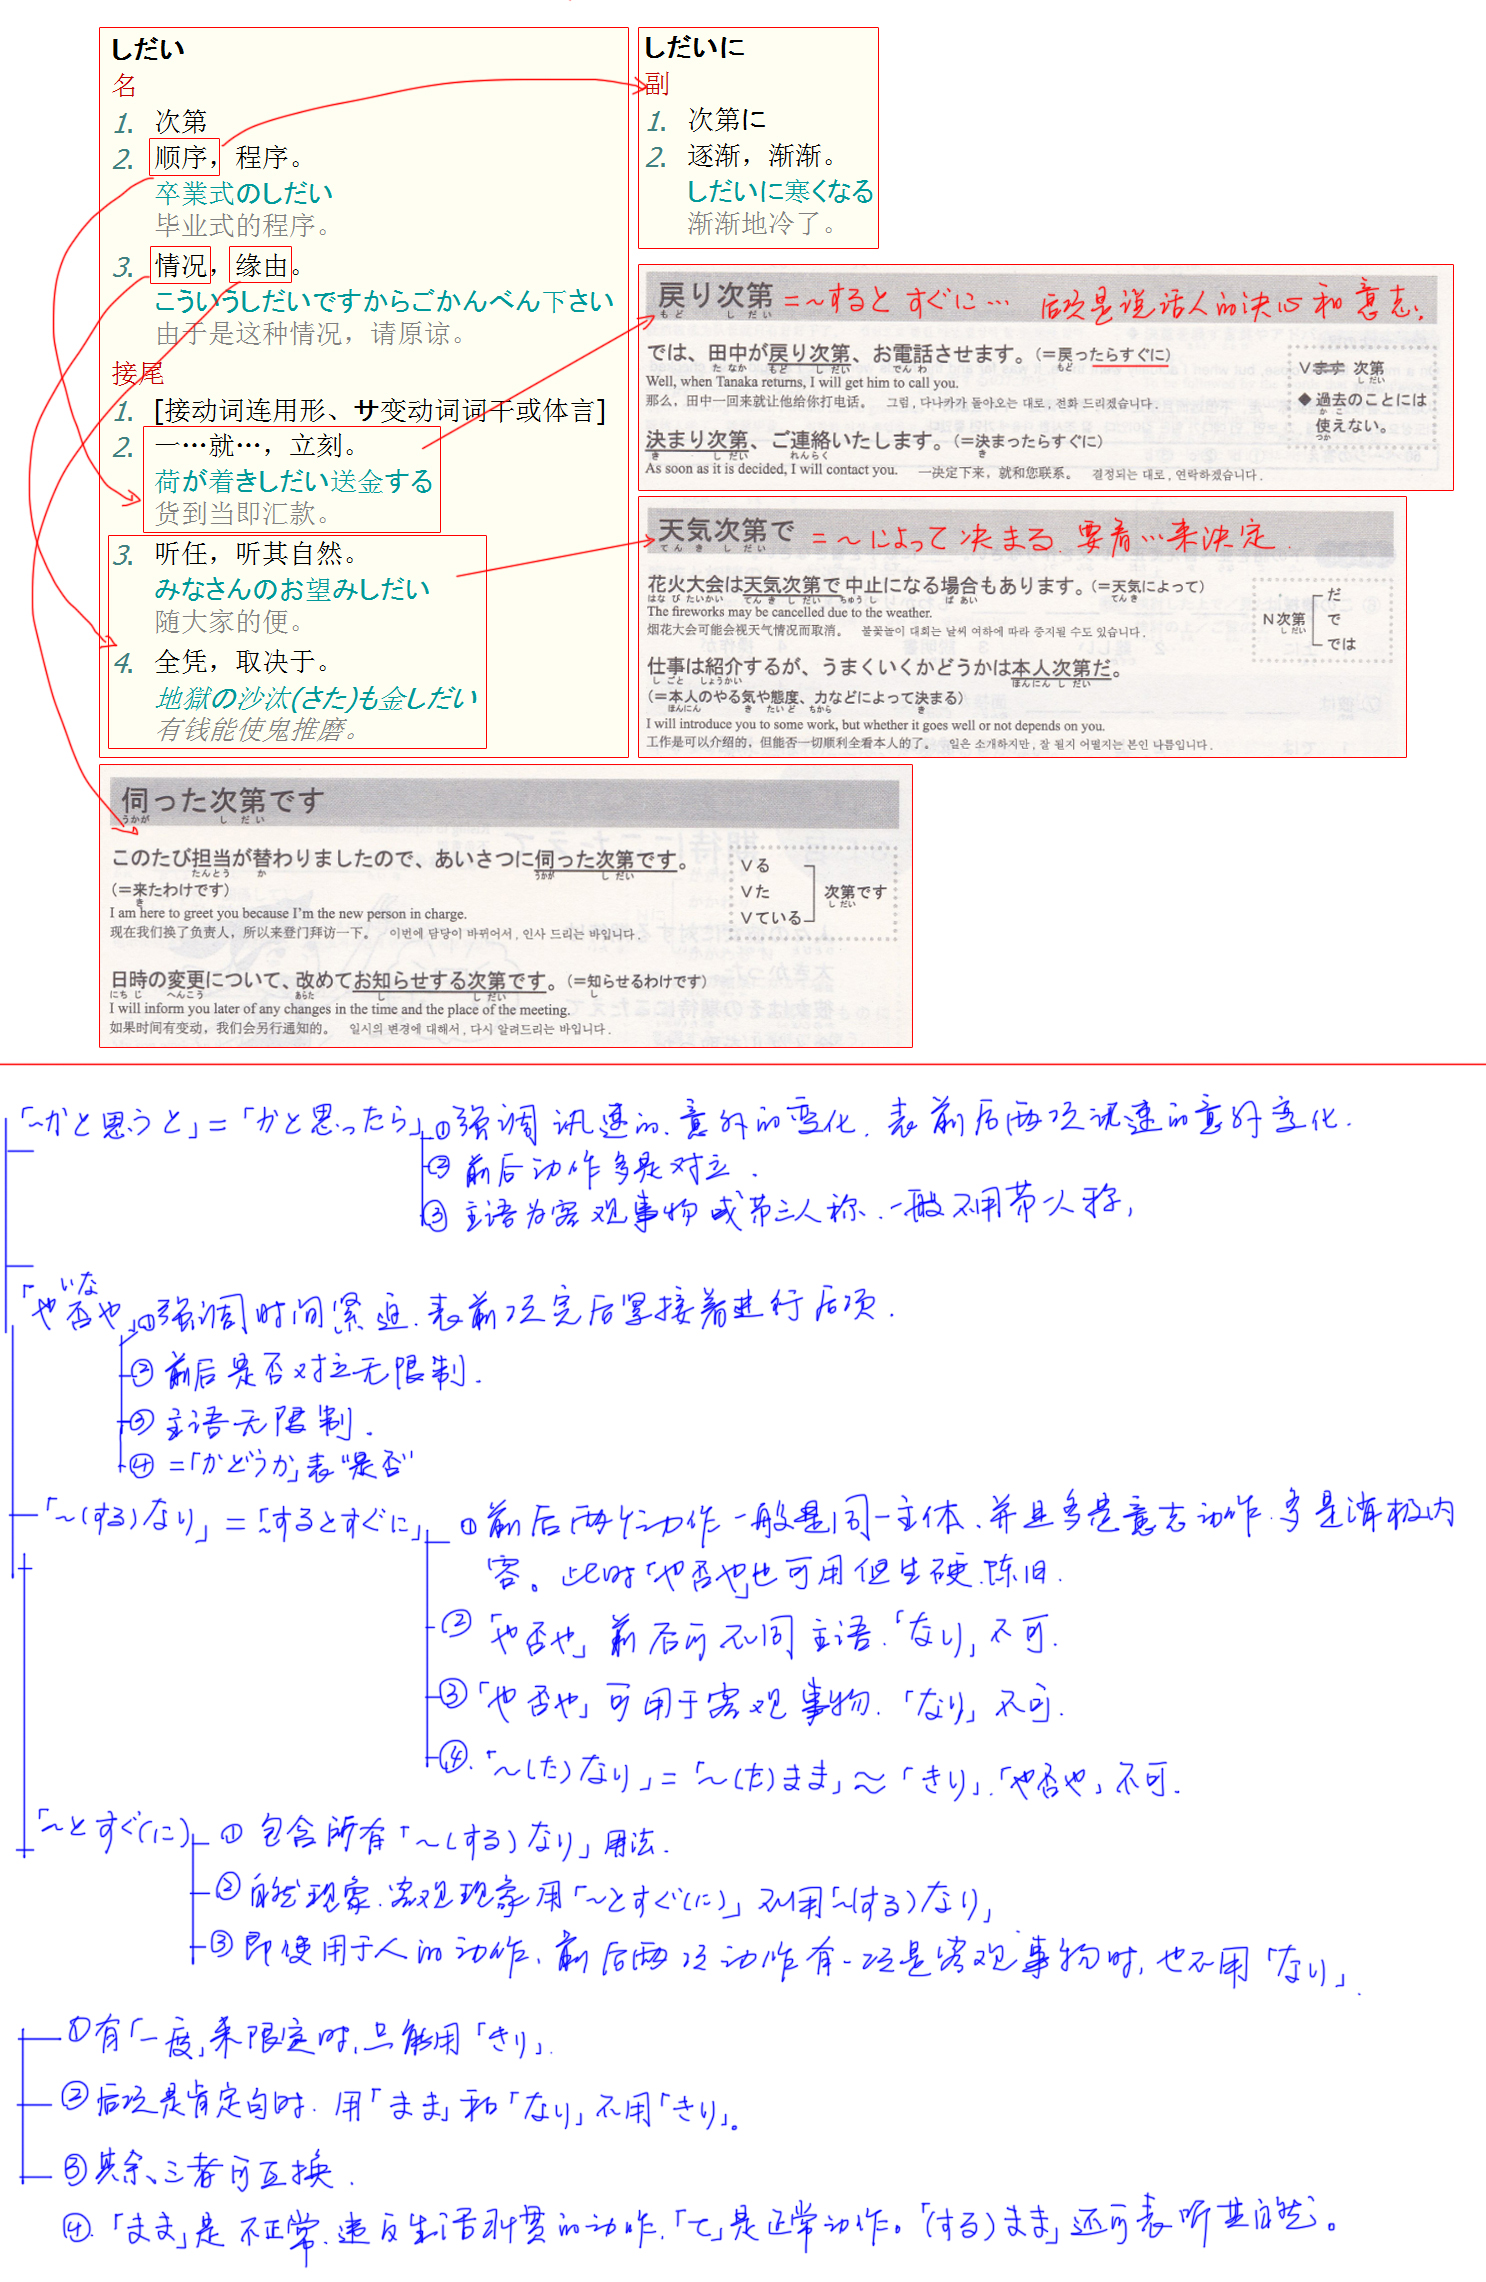 しだい
名
1. 次第
2. 顺序，程序。
卒業式のしだい
毕业式的程序。
3. 情况，缘由。
こういうしだいですからごかんべん下さい
由于是这种情况，请原谅。
接尾
1. [接动词连用形、サ变动词词干或体言]
2. 一…就…，立刻。
荷が着きしだい送金する
货到当即汇款。
3. 听任，听其自然。
みなさんのお望みしだい
随大家的便。
4. 全凭，取决于。
地獄の沙汰(さた)も金しだい
有钱能使鬼推磨。
しだいに
副
1. 次第に
2. 逐渐，渐渐。
しだいに寒くなる
渐渐地冷了。
戻り次第 =～するとすぐに… 后项是说话人的决心和意志.
もど しだい
では、田中が戻り次第、お電話させます。(=戻ったらすぐに)
たなか もど しだい でんわ もど
Well, when Tanaka returns, I will get him to call you.
那么，田中一回来就让他给你打电话。 그럼, 다나카가 돌아오는 대로, 전화 드리겠습니다.
決まり次第、ご連絡いたします。(=決まったらすぐに)
き しだい れんらく き
As soon as it is decided, I will contact you. 一决定下来，就和您联系。 결정되는 대로, 연락하겠습니다.
Vます 次第
しだい
◆ 過去のことには
かこ
使えない。
つか
天気次第で =～によって决まる 要看…来决定.
てんき しだい
花火大会は天気次第で中止になる場合もあります。(=天気によって)
はなびたいかい てんきしだい ちゅうし ばあい てんき
The fireworks may be cancelled due to the weather.
烟花大会可能会视天气情况而取消。 불꽃놀이 대회는 날씨 여하에 따라 중지될 수도 있습니다.
仕事は紹介するが、うまくいくかどうかは本人次第だ。
しごと しょうかい ほんにんしだい
(=本人のやる気や態度、力などによって決まる)
ほんにん き たいど ちから き
I will introduce you to some work, but whether it goes well or not depends on you.
工作是可以介绍的，但能否一切顺利全看本人的了。 일은 소개하지만, 잘 될지 어떨지는 본인 나름입니다.
N次第
しだい
だ
で
では
伺った次第です
うかが しだい
このたび担当が替わりましたので、あいさつに伺った次第です。
たんとう か うかが しだい
(=来たわけです)
き
I am here to greet you because I'm the new person in charge.
现在我们换了负责人，所以来登门拜访一下。 이번에 담당이 바뀌어서, 인사 드리는 바입니다.
日時の変更について、改めてお知らせする次第です。(=知らせるわけです)
にちじ へんこう あらた し しだい し
I will inform you later of any changes in the time and the place of the meeting.
如果时间有变动，我们会另行通知的。 일시의 변경에 대해서, 다시 알려드리는 바입니다.
Vる
Vた
Vている
次第です
しだい
「～かと思うと」=「かと思ったら」①强调 讯速的、意外的变化. 表前后两项讯速的意外变化.
②前后动作多是对立.
③主语为客观事物或第三人称. 一般不用第一人称,
いな
「や否や」①强调时间紧迫. 表前项完后紧接着进行后项.
②前后是否对立无限制.
③主语无限制.
④=「かどうか」表"是否"
「～(する)なり」=「～するとすぐに」 ①前后两个动作一般是同一主体、并且多是意志动作. 多是消极内
容。此时「や否や」也可用但生硬.陈旧.
②「や否や」前后可不同主语.「なり」不可.
③「や否や」可用于客观事物.「なり」不可.
④.「～(た)なり」=「～(た)まま」≈「きり」.「や否や」不可.
「～とすぐ(に) ①包含所有「～(する)なり」用法.
②自然现象.客观现象用「～とすぐ(に)」不用「～(する)なり」
③即使用于人的动作、前后两项动作有一项是客观事物时, 也不用「なり」.
①有「一度」来限定时, 只能用「きり」.
②后项是肯定句时. 用「まま」和「なり」不用「きり」。
③其余、三者可互换.
④.「まま」是不正常.违反生活习惯的动作.「て」是正常动作。「(する)まま」还可表听其自然。